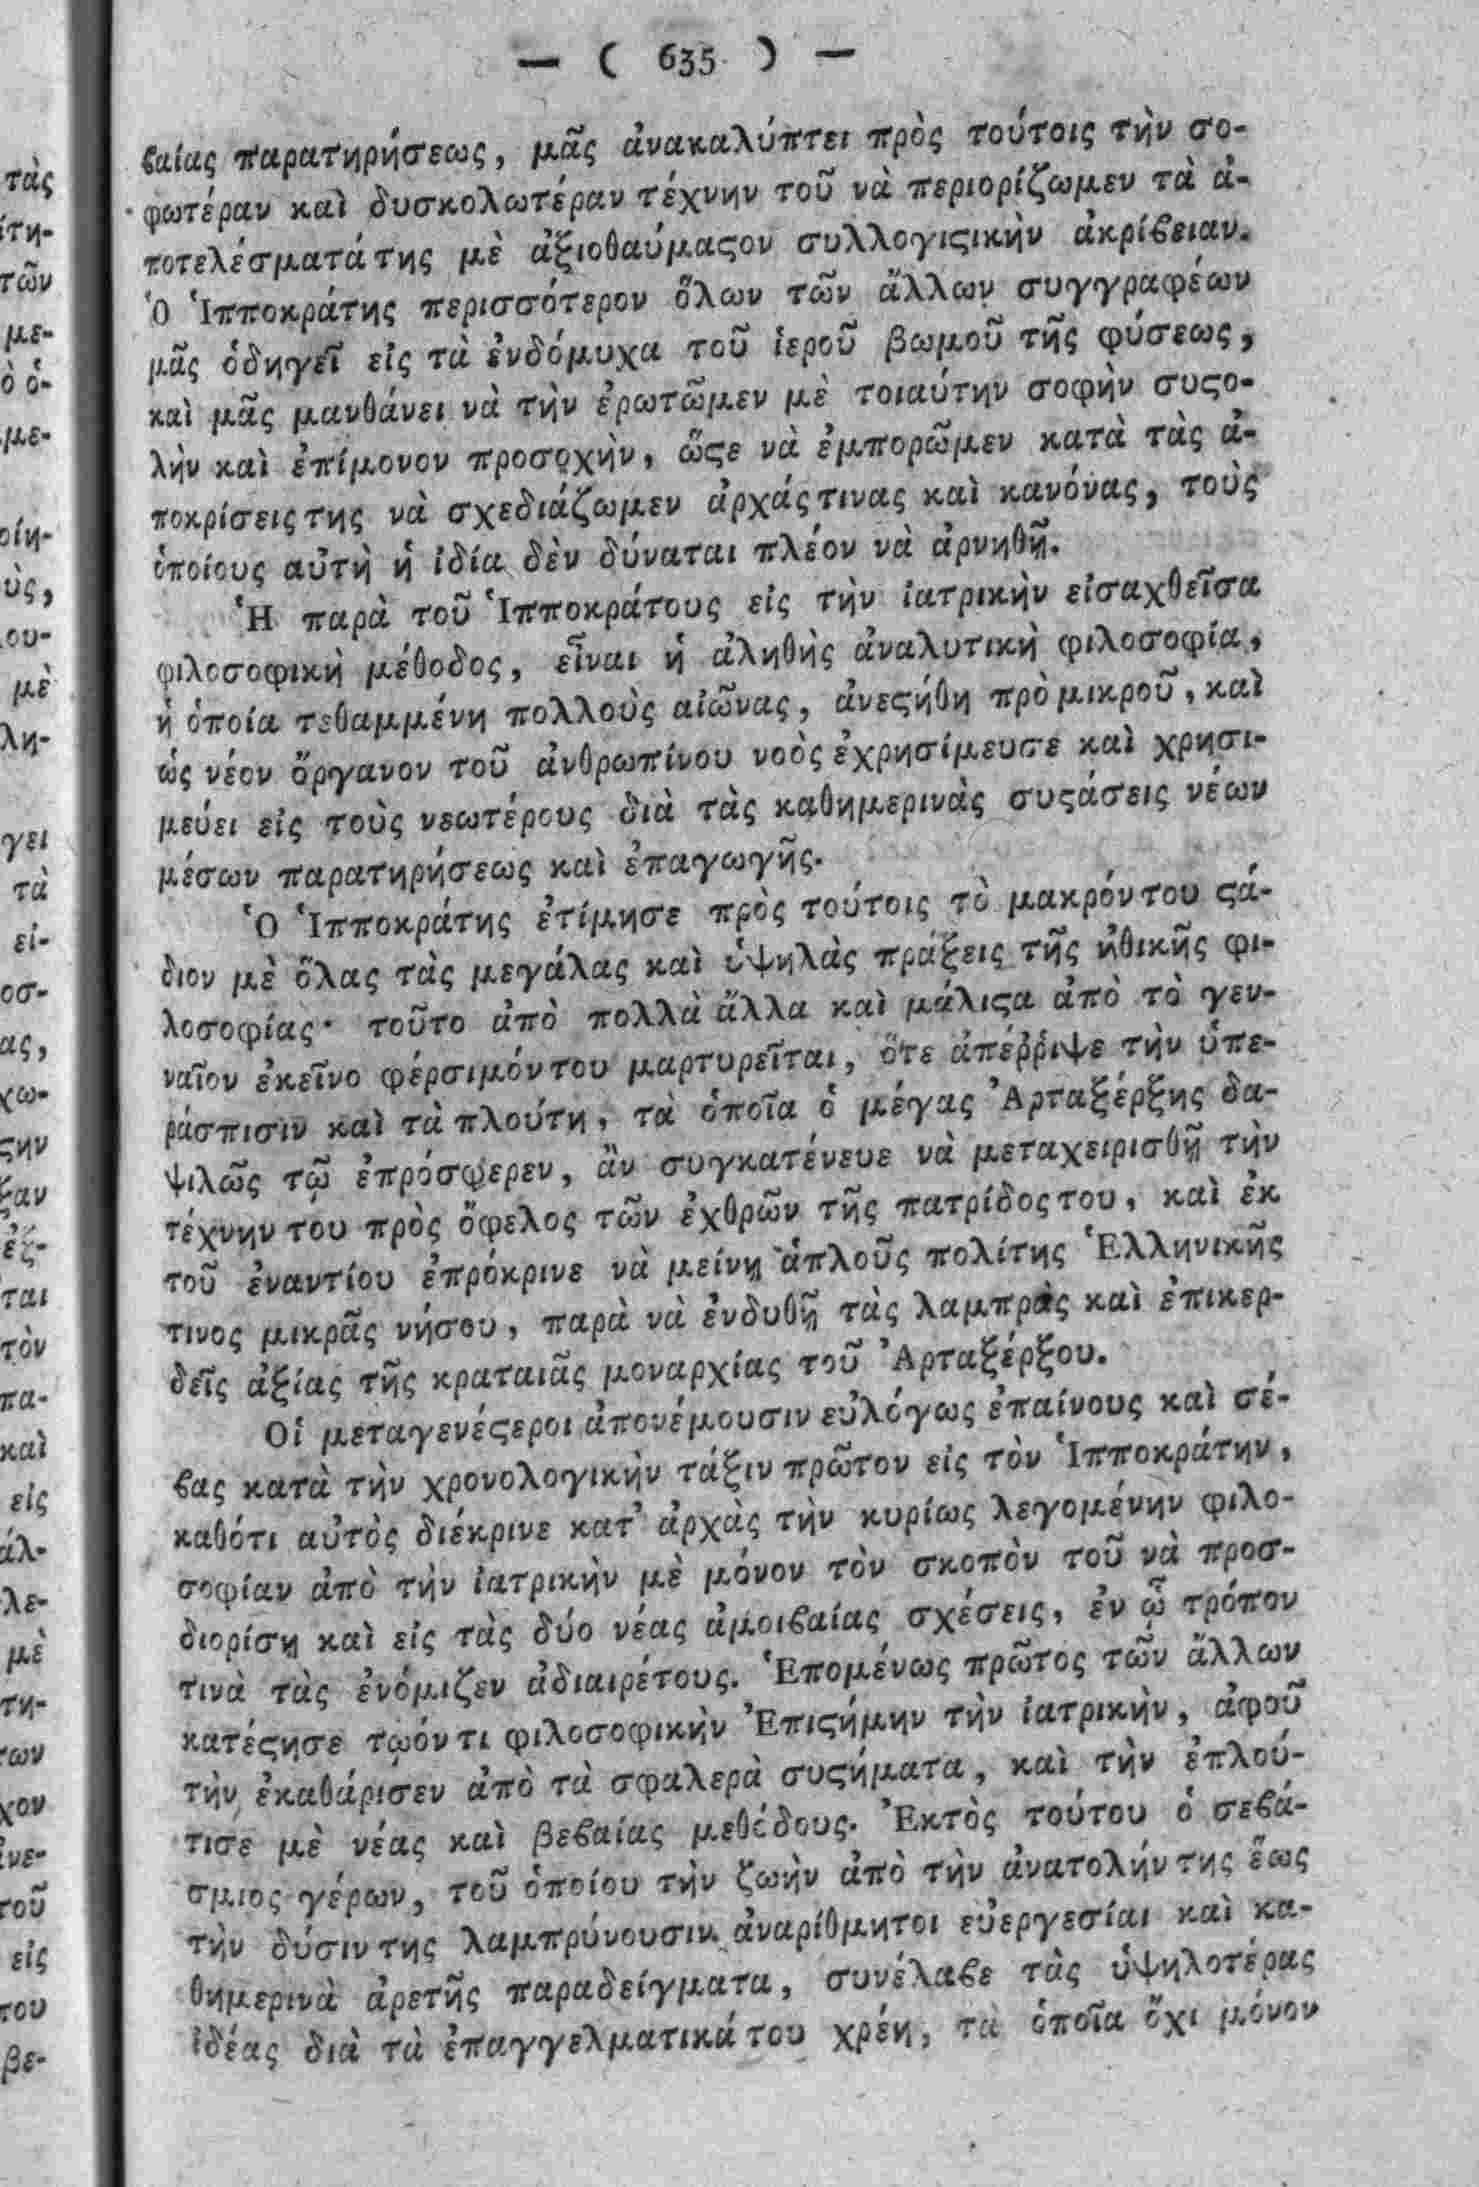 — ( 635 ) —
ϐαίας παρατηρήσεως, μᾶς ἀνακαλύπτει πρὸς τούτοις τὴν σο-
φωτέραν καὶ δυσκολωτέραν τέχνην τοῦ νὰ περιορίζωμεν τὰ ἀ-
ποτελέσματά της μὲ ἀξιοθαύμαϛον συλλογιϛικὴν ἀκρίϐειαν.
Ὁ Ἱπποκράτης περισσότερον ὅλων τῶν ἄλλων συγγραφέων
μᾶς ὁδηγεῖ εἰς τὰ ἐνδόμυχα τοῦ ἱεροῦ βωμοῦ τῆς φύσεως,
καὶ μᾶς μανθάνει νὰ τὴν ἐρωτῶμεν μὲ τοιαύτην σοφὴν συϛο-
λὴν καὶ ἐπίμονον προσοχὴν, ὥϛε νὰ ἐμπορῶμεν κατὰ τὰς ἀ-
ποκρίσεις της νὰ σχεδιάζωμεν ἀρχάς τινας καὶ κανόνας, τοὺς
ὁποίους αὐτὴ ἡ ἰδία δὲν δύναται πλέον νὰ ἀρνηθῇ.
Ἡ παρὰ τοῦ Ἱπποκράτους εἰς τὴν ἰατρικὴν εἰσαχθεῖσα
φιλοσοφικὴ μέθοδος, εἶναι ἡ ἀληθὴς ἀναλυτικὴ φιλοσοφία,
ἡ ὁποία τεθαμμένη πολλοὺς αἰῶνας, ἀνεϛήθη πρὸ μικροῦ, καὶ
ὡς νέον ὄργανον τοῦ ἀνθρωπίνου νοὸς ἐχρησίμευσε καὶ χρησι-
μεύει εἰς τοὺς νεωτέρους διὰ τὰς καθημερινὰς συϛάσεις νέων
μέσων παρατηρήσεως καὶ ἐπαγωγῆς.
Ὁ Ἱπποκράτης ἐτίμησε πρὸς τούτοις τὸ μακρόν του ϛά-
διον μὲ ὅλας τὰς μεγάλας καὶ ὑψηλὰς πράξεις τῆς ἠθικῆς φι-
λοσοφίας· τοῦτο ἀπὸ πολλὰ ἄλλα καὶ μάλιϛα ἀπὸ τὸ γεν-
ναῖον ἐκεῖνο φέρσιμόν του μαρτυρεῖται, ὅτε ἀπέῤῥιψε τὴν ὑπε-
ράσπισιν καὶ τὰ πλούτη, τὰ ὁποῖα ὁ μέγας Ἀρταξέρξης δα-
ψιλῶς τῷ ἐπρόσφερεν, ἂν συγκατένευε νὰ μεταχειρισθῇ τὴν
τέχνην του πρὸς ὄφελος τῶν ἐχθρῶν τῆς πατρίδος του, καὶ ἐκ
τοῦ ἐναντίου ἐπρόκρινε νὰ μείνῃ ἁπλοῦς πολίτης Ἑλληνικῆς
τινος μικρᾶς νήσου, παρὰ νὰ ἐνδυθῇ τὰς λαμπρὰς καὶ ἐπικερ-
δεῖς ἀξίας τῆς κραταιᾶς μοναρχίας τοῦ Ἀρταξέρξου.
Οἱ μεταγενέϛεροι ἀπονέμουσιν εὐλόγως ἐπαίνους καὶ σέ-
ϐας κατὰ τὴν χρονολογικὴν τάξιν πρῶτον εἰς τὸν Ἱπποκράτην,
καθότι αὐτὸς διέκρινε κατ' ἀρχὰς τὴν κυρίως λεγομένην φιλο-
σοφίαν ἀπὸ τὴν ἰατρικὴν μὲ μόνον τὸν σκοπὸν τοῦ νὰ προσ-
διορίσῃ καὶ εἰς τὰς δύο νέας ἀμοιϐαίας σχέσεις, ἐν ᾧ τρόπον
τινὰ τὰς ἐνόμιζεν ἀδιαιρέτους. Ἑπομένως πρῶτος τῶν ἄλλων
κατέϛησε τῳόντι φιλοσοφικὴν Ἐπιϛήμην τὴν ἰατρικὴν, ἀφοῦ
τὴν ἐκαθάρισεν ἀπὸ τὰ σφαλερὰ συϛήματα, καὶ τὴν ἐπλού-
τισε μὲ νέας καὶ βεϐαίας μεθόδους. Ἐκτὸς τούτου ὁ σεϐά-
σμιος γέρων, τοῦ ὁποίου τὴν ζωὴν ἀπὸ τὴν ἀνατολήν της ἕως
τὴν δύσιν της λαμπρύνουσιν ἀναρίθμητοι εὐεργεσίαι καὶ κα-
θημερινὰ ἀρετῆς παραδείγματα, συνέλαϐε τὰς ὑψηλοτέρας
ἰδέας διὰ τὰ ἐπαγγελματικά του χρέη, τὰ ὁποῖα ὄχι μόνον